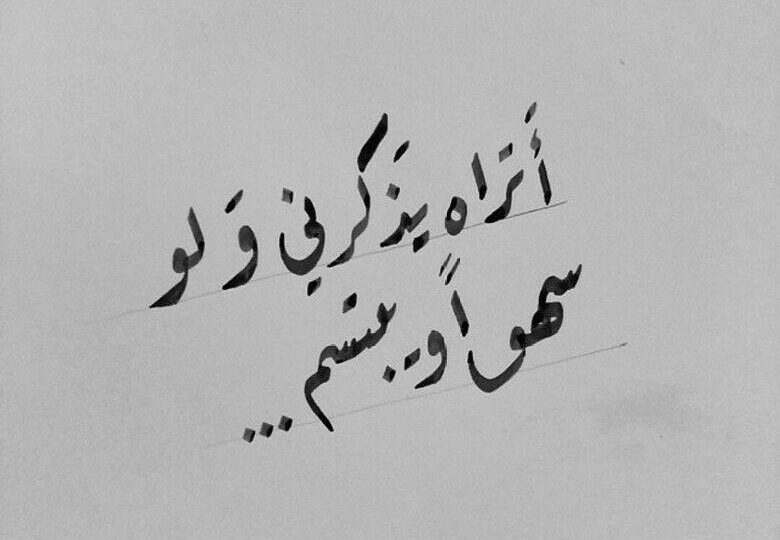 أَتَراه يَذكرني وَلو
سهواً ويبتسم...